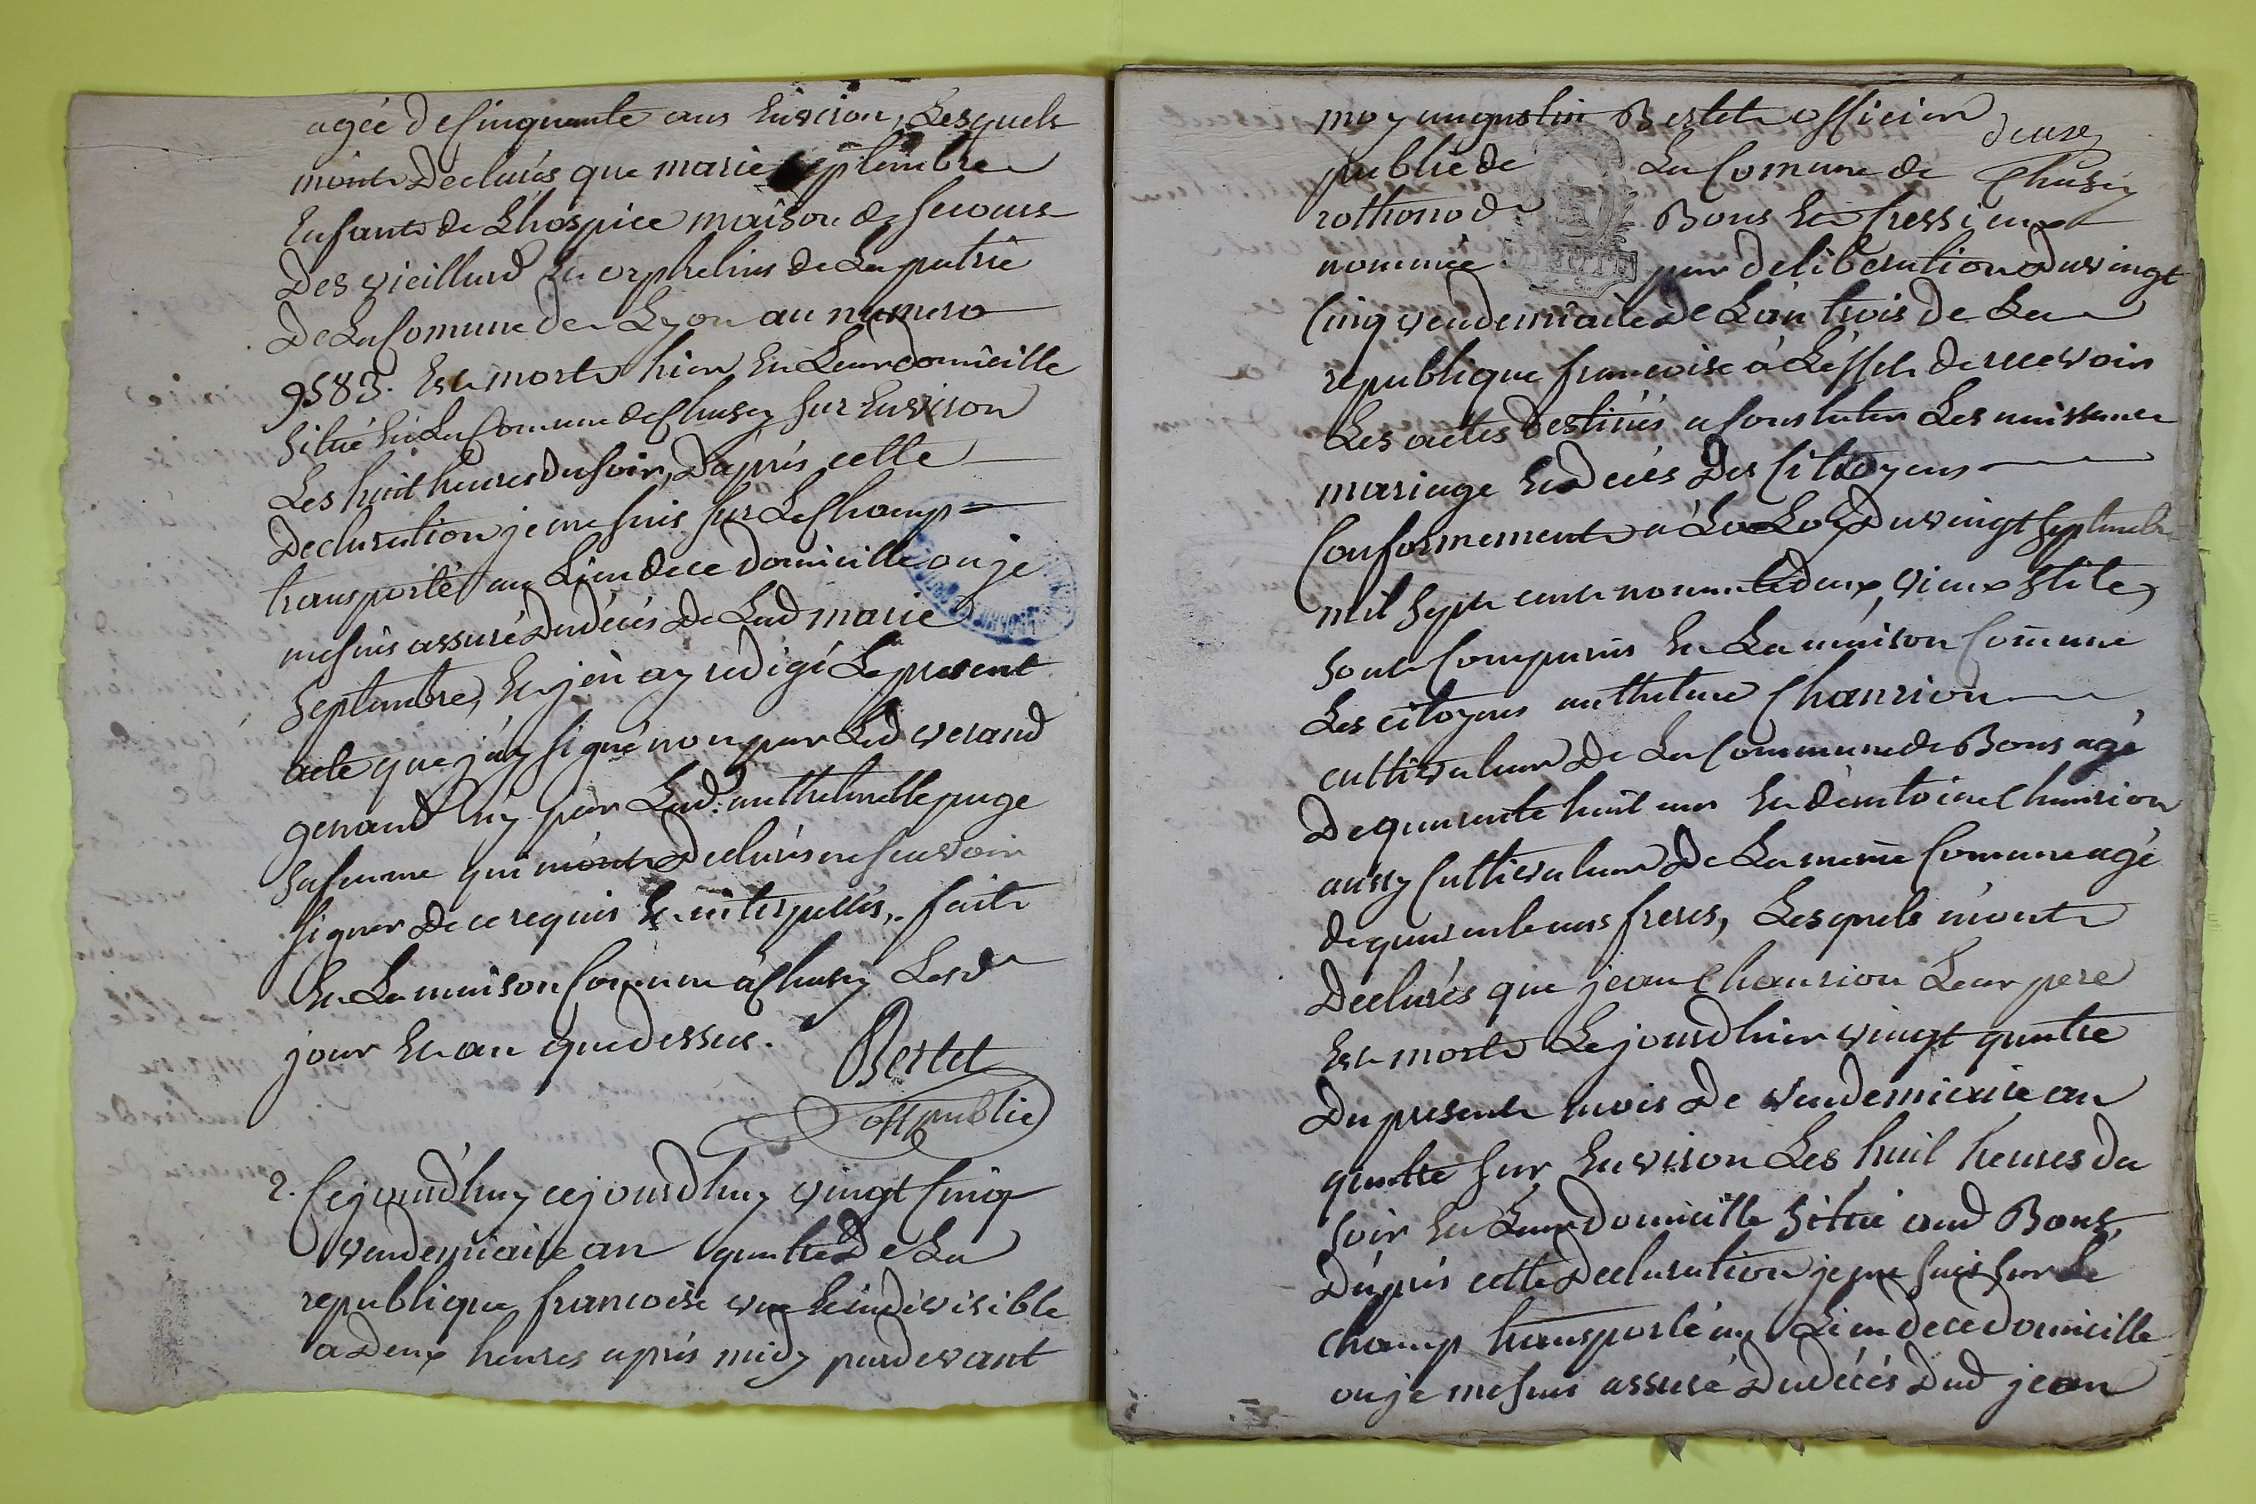 agée de Cinquante ans Environ, Lesquels
m'ont Declarés que marie Septembre
Enfants de L'hospice maison de Secours
Des vieillard Et orphelins de La patrie
De La Comune de Lyon au numero
9583. Est morte hier En Leur domicille
Situé En La Comune de Chusey sur Environ
Les huit heures du soir, D'aprés cette
Declaration je me suis sur Le Champ
transporté au Lieu de ce domicille ou je
me suis assuré Du décés De Lad marie
Septembre, Et j'en ay redigé Le present
acte que j'ay signé non par Led verand
genand ny par Lad. anthelmette puge
sa femme qui m'ont Declarés ne scavoir
signer De ce requis Et interpellés, fait
En La maison Comune a Chusey Lesd
jour Et an que dessus.
Bertet
off public
2. Cejourd'huy cejourd'huy vingt Cinq
vendemiaire an quatre De La
republique francoise une Et indivisible
a Deux heures aprés midy pardevant
moy augustin Bertet officier
public de La Comune de Chusey
deux
rothonod Bons Et Cressieux
nommée par deliberation Du vingt
Cinq vendemiaire De L'an trois de La
republique francoise à L'effet de recevoir
Les actes Destinés a Constater Les naissance
mariage Et Décés Des Citoyens
Conformement a La Loy Du vingt Septembre
mil Sept cent nonante deux, vieux stile,
sont Comparus En La maison Comune
Les citoyens anthelme Chanrion
cultivateur De La Commune de Bons agé
De quarante huit ans Et d'entoine Chanrion
aussy Cultivateur De La meme Comune agé
de quarente ans freres, Lesquels m'ont
Declarés que jean Chanrion Leur pere
Est mort Le jourd'hier vingt quatre
Du present mois De vendemiaire an
quatre sur Environ Les huit heures du
soir En Leur domicille Situé aud Bons,
D'aprés cette Declaration je me suis sur Le
Champ transporté au Lieu de ce domicille
ou je me suis assuré Du décés Dud jean